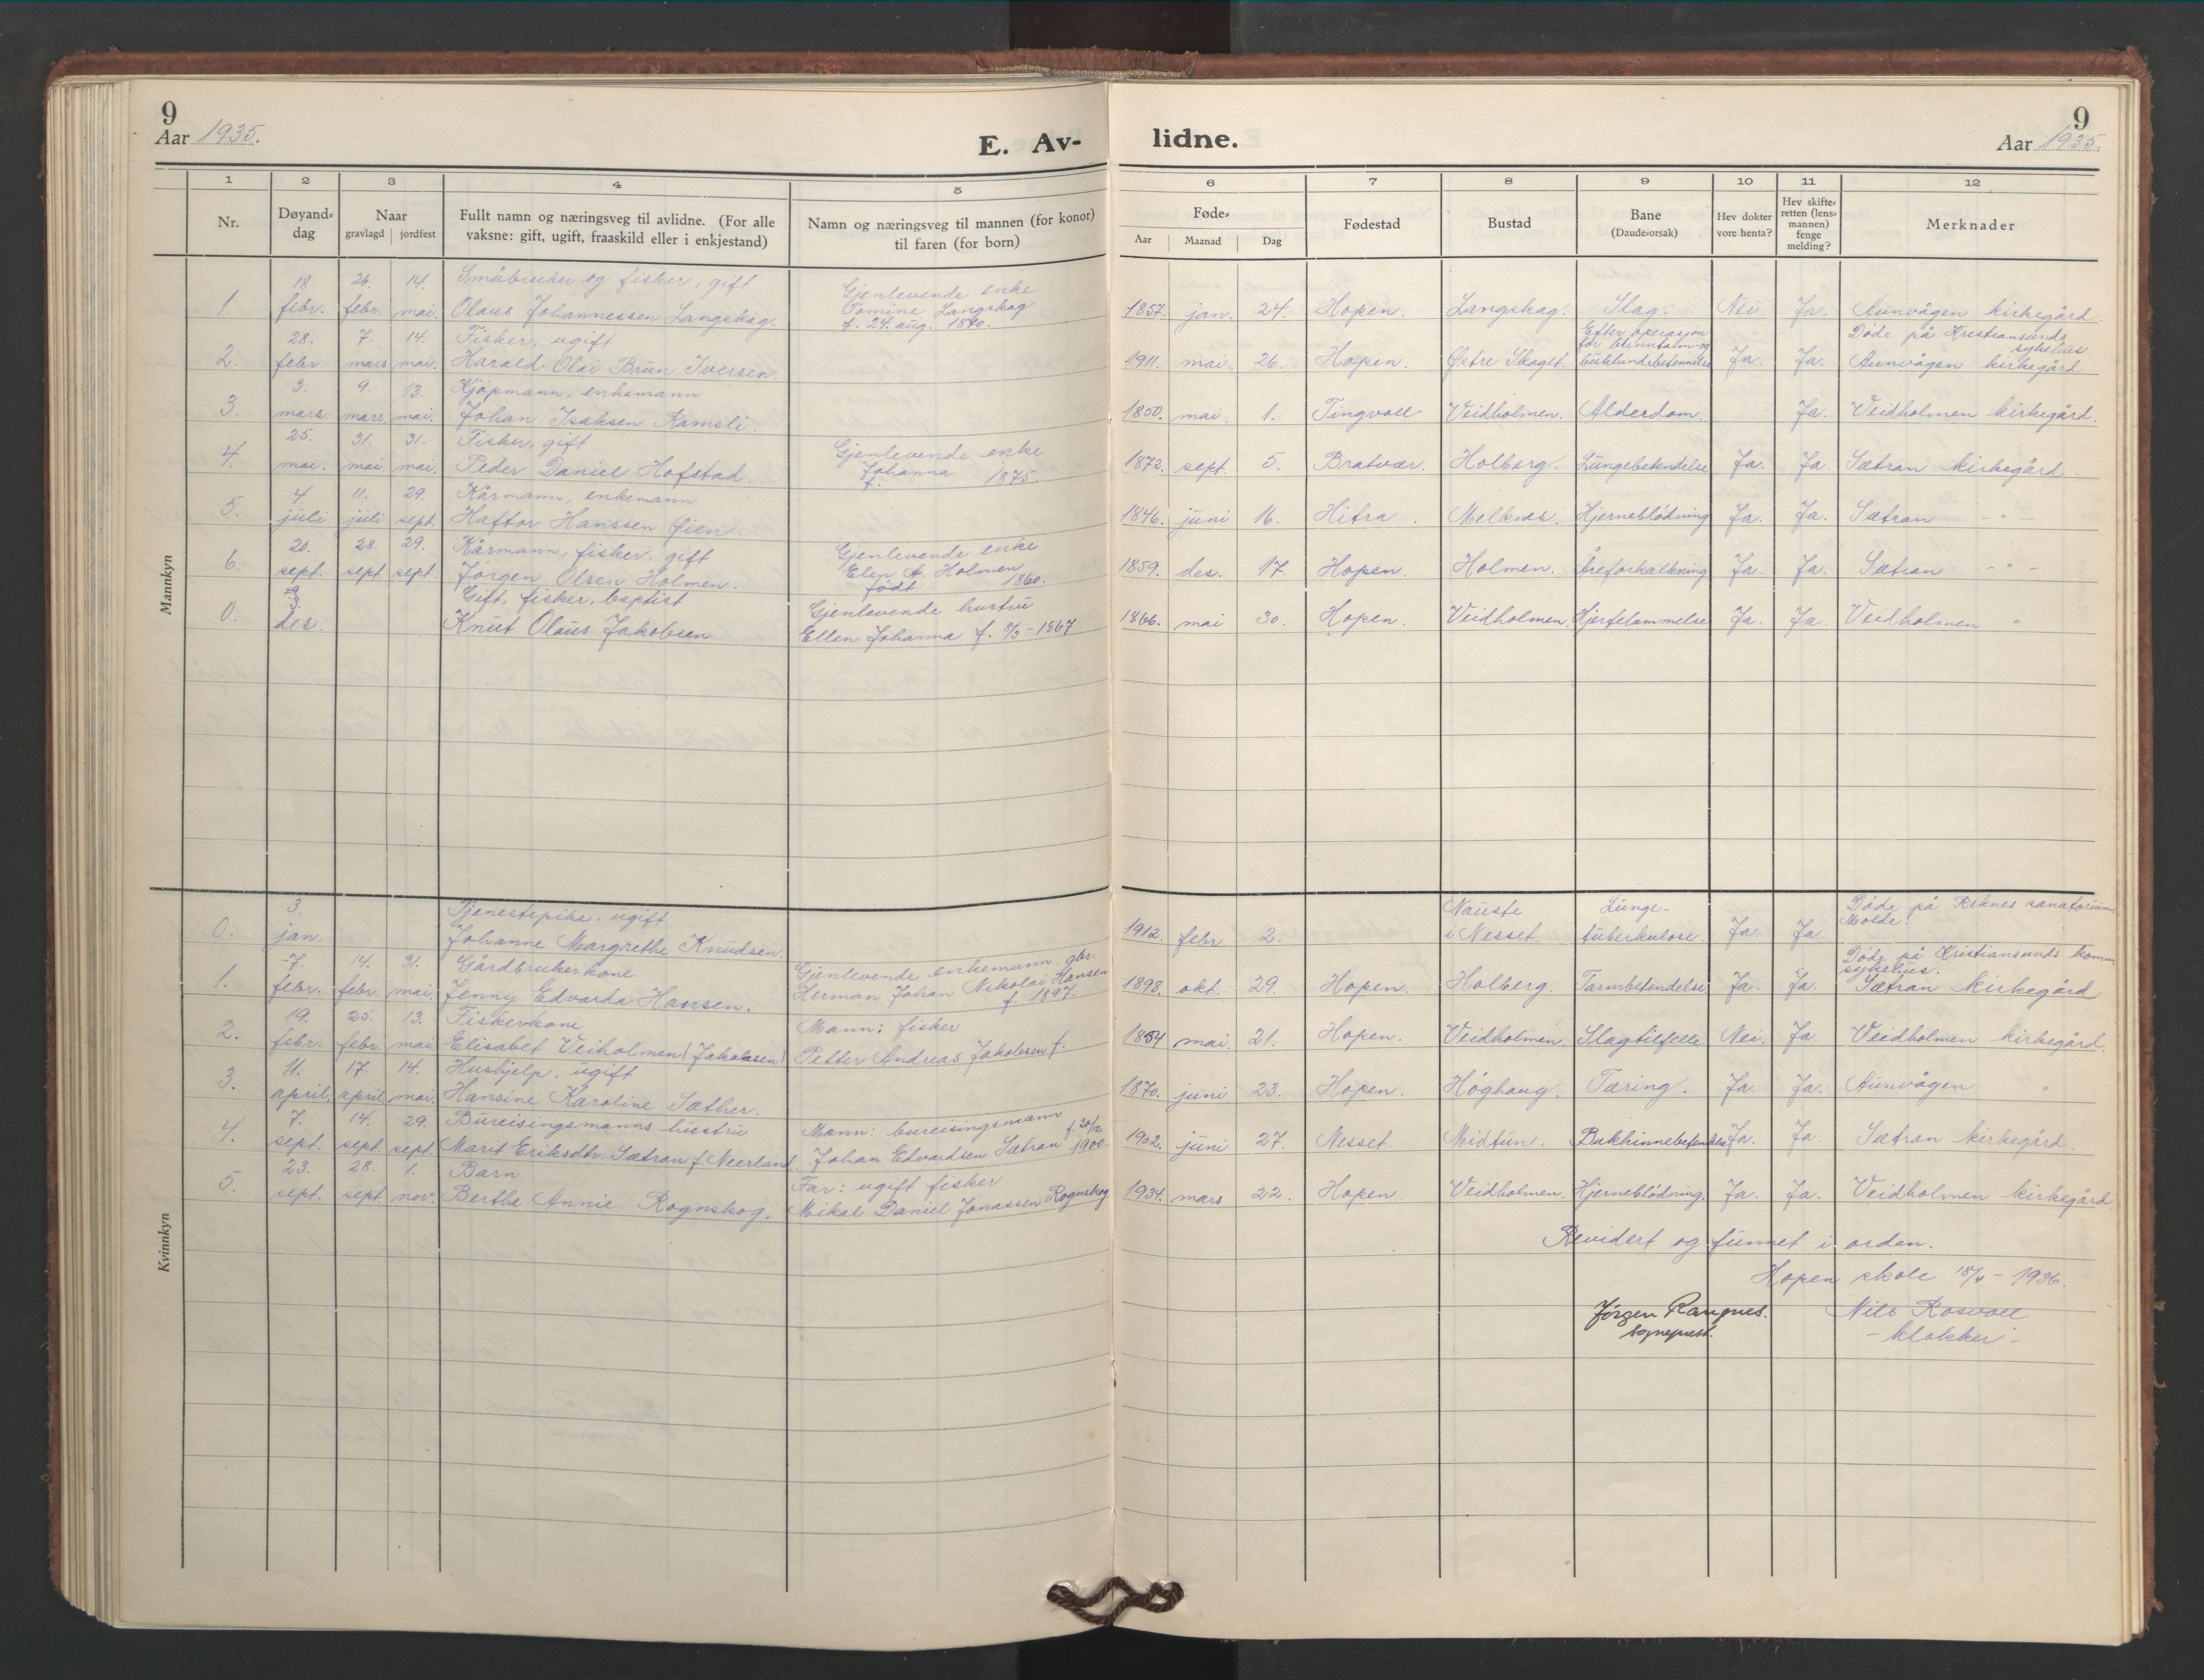 9
Aar 1935.
E. Av-
1 2 3 4 5
Nr.
Døyand-
dag
Naar
gravlagd jordfest
Fullt namn og næringsveg til avlidne. (For alle
vaksne: gift, ugift, fraaskild eller i enkjestand)
Namn og næringsveg til mannen (for konor)
til faren (for born)
Mannkyn
18. 26. 14. Småbruker og fisker, gift Gjenlevende enke
1. febr. febr. mai. Olaus Johannessen Langskag. Tomine Langskag
f. 24. aug. 1870.
28. 7. 14. Fisker, ugift
2. febr. mars mai. Harald Olai Brun Iversen.
3. 9. 13. Kjøpmann, enkemann
3. mars. mars. mai. Johan Isaksen Ramsli.
25. 31. 31. Fisker, gift Gjenlevende enke
4. mai. mai. mai. Peder Daniel Hofstad. Johanna
f. 1875.
4. 11. 29. Kårmann, enkemann
5. juli juli sept. Haftor Hanssen Øien.
20. 28. 29. Kårmann, fisker, gift Gjenlevende enke
6. sept. sept. sept. Jørgen Olsen Holmen. Elen A. Holmen
født 1860.
3. Gift, fisker, baptist Gjenlevende hustru
0. des. Knut Olaus Jakobsen Ellen Johanna f. 8/3-1867
Kvinnkyn
3. Tjenestepike, ugift
0. jan. Johanne Margrethe Knudsen.
7. 14. 31. Gårdbrukerkone Gjenlevende enkemann, gbr.
1. febr. febr. mai. Jenny Edvarda Hansen. Herman Johan Nikolai Hansen
f. 1897.
19. 25. 13. Fiskerkone Mann: fisker
2. febr. febr. mai. Elisabet Veiholmen (Jakobsen) Petter Andreas Jakobsen f.
11. 17. 14. Hushjelp, ugift
3. april. april mai. Hansine Karoline Sæther.
7. 14. 29. Bureisingsmanns hustru Mann: bureisingsmann
4. sept. sept. sept. Marit Eriksdtr. Sætran f. Neerland. Johan Edvardsen Sætran f. 20/12 1900.
23. 28. 1. Barn Far: ugift fisker
5. sept. sept. nov. Berthe Annie Rognskog. Mikal Daniel Jonassen Rognskog
9
lidne.
Aar 1935.
6 7 8 9 10 11 12
Føde-
Aar Maanad Dag
Fødestad
Bustad
Bane
(Daude-orsak)
Hev dokter
vore henta?
Hev skifte-
retten (lens-
mannen)
fenge
melding?
Merknader
1857. jan. 24. Hopen. Langskag. Slag. Nei. Ja. Aunvågen kirkegård.
Efter operasjon Døde på Kristiansunds
for blinntarm- og sykehus
1911. mai. 26. Hopen. Østre Skaget. bukhindebetennelse Ja. Ja. Aunvågen kirkegård
1850. mai. 1. Tingvoll Veidholmen. Alderdom. Ja. Veidholmen kirkegård.
1872. sept. 5. Bratvær. Holberg. Lungebetendelse Ja. Ja. Sætran kirkegård.
1846. juni 16. Hitra. Melknes. Hjerneblødning Ja. Ja. Sætran - " -
1859. des. 17. Hopen. Holmen. Åreforkalkning Ja. Ja. Sætran - " -
1866. mai 30. Hopen. Veidholmen. Hjertelammelse Ja. Ja. Veidholmen "
Nauste Lunge- Døde på Reknes sanatorium
1912. febr. 2. i Nesset. tuberkulose. Ja. Ja. Molde.
Døde på Kristiansunds komm.
sykehus.
1898. okt. 29. Hopen. Holberg. Tarmbetendelse Ja. Ja. Sætran kirkegård
1854 mai. 21. Hopen. Veidholmen Slagtilfelle. Nei. Ja. Veidholmen kirkegård.
1870. juni 23. Hopen. Høghaug. Tæring. Ja. Ja. Aunvågen "
1902. juni 27. Nesset. Midtun. Bukhinnebetendelse Ja. Ja. Sætran kirkegård
1934. mars 22. Hopen. Veidholmen. Hjerneblødning. Ja. Ja. Veidholmen kirkegård.
Revidert og funnet i orden.
Hopen skole 18/4 - 1936.
Jørgen Rangnes. Nils Rosvoll
sogneprest. - klokker -